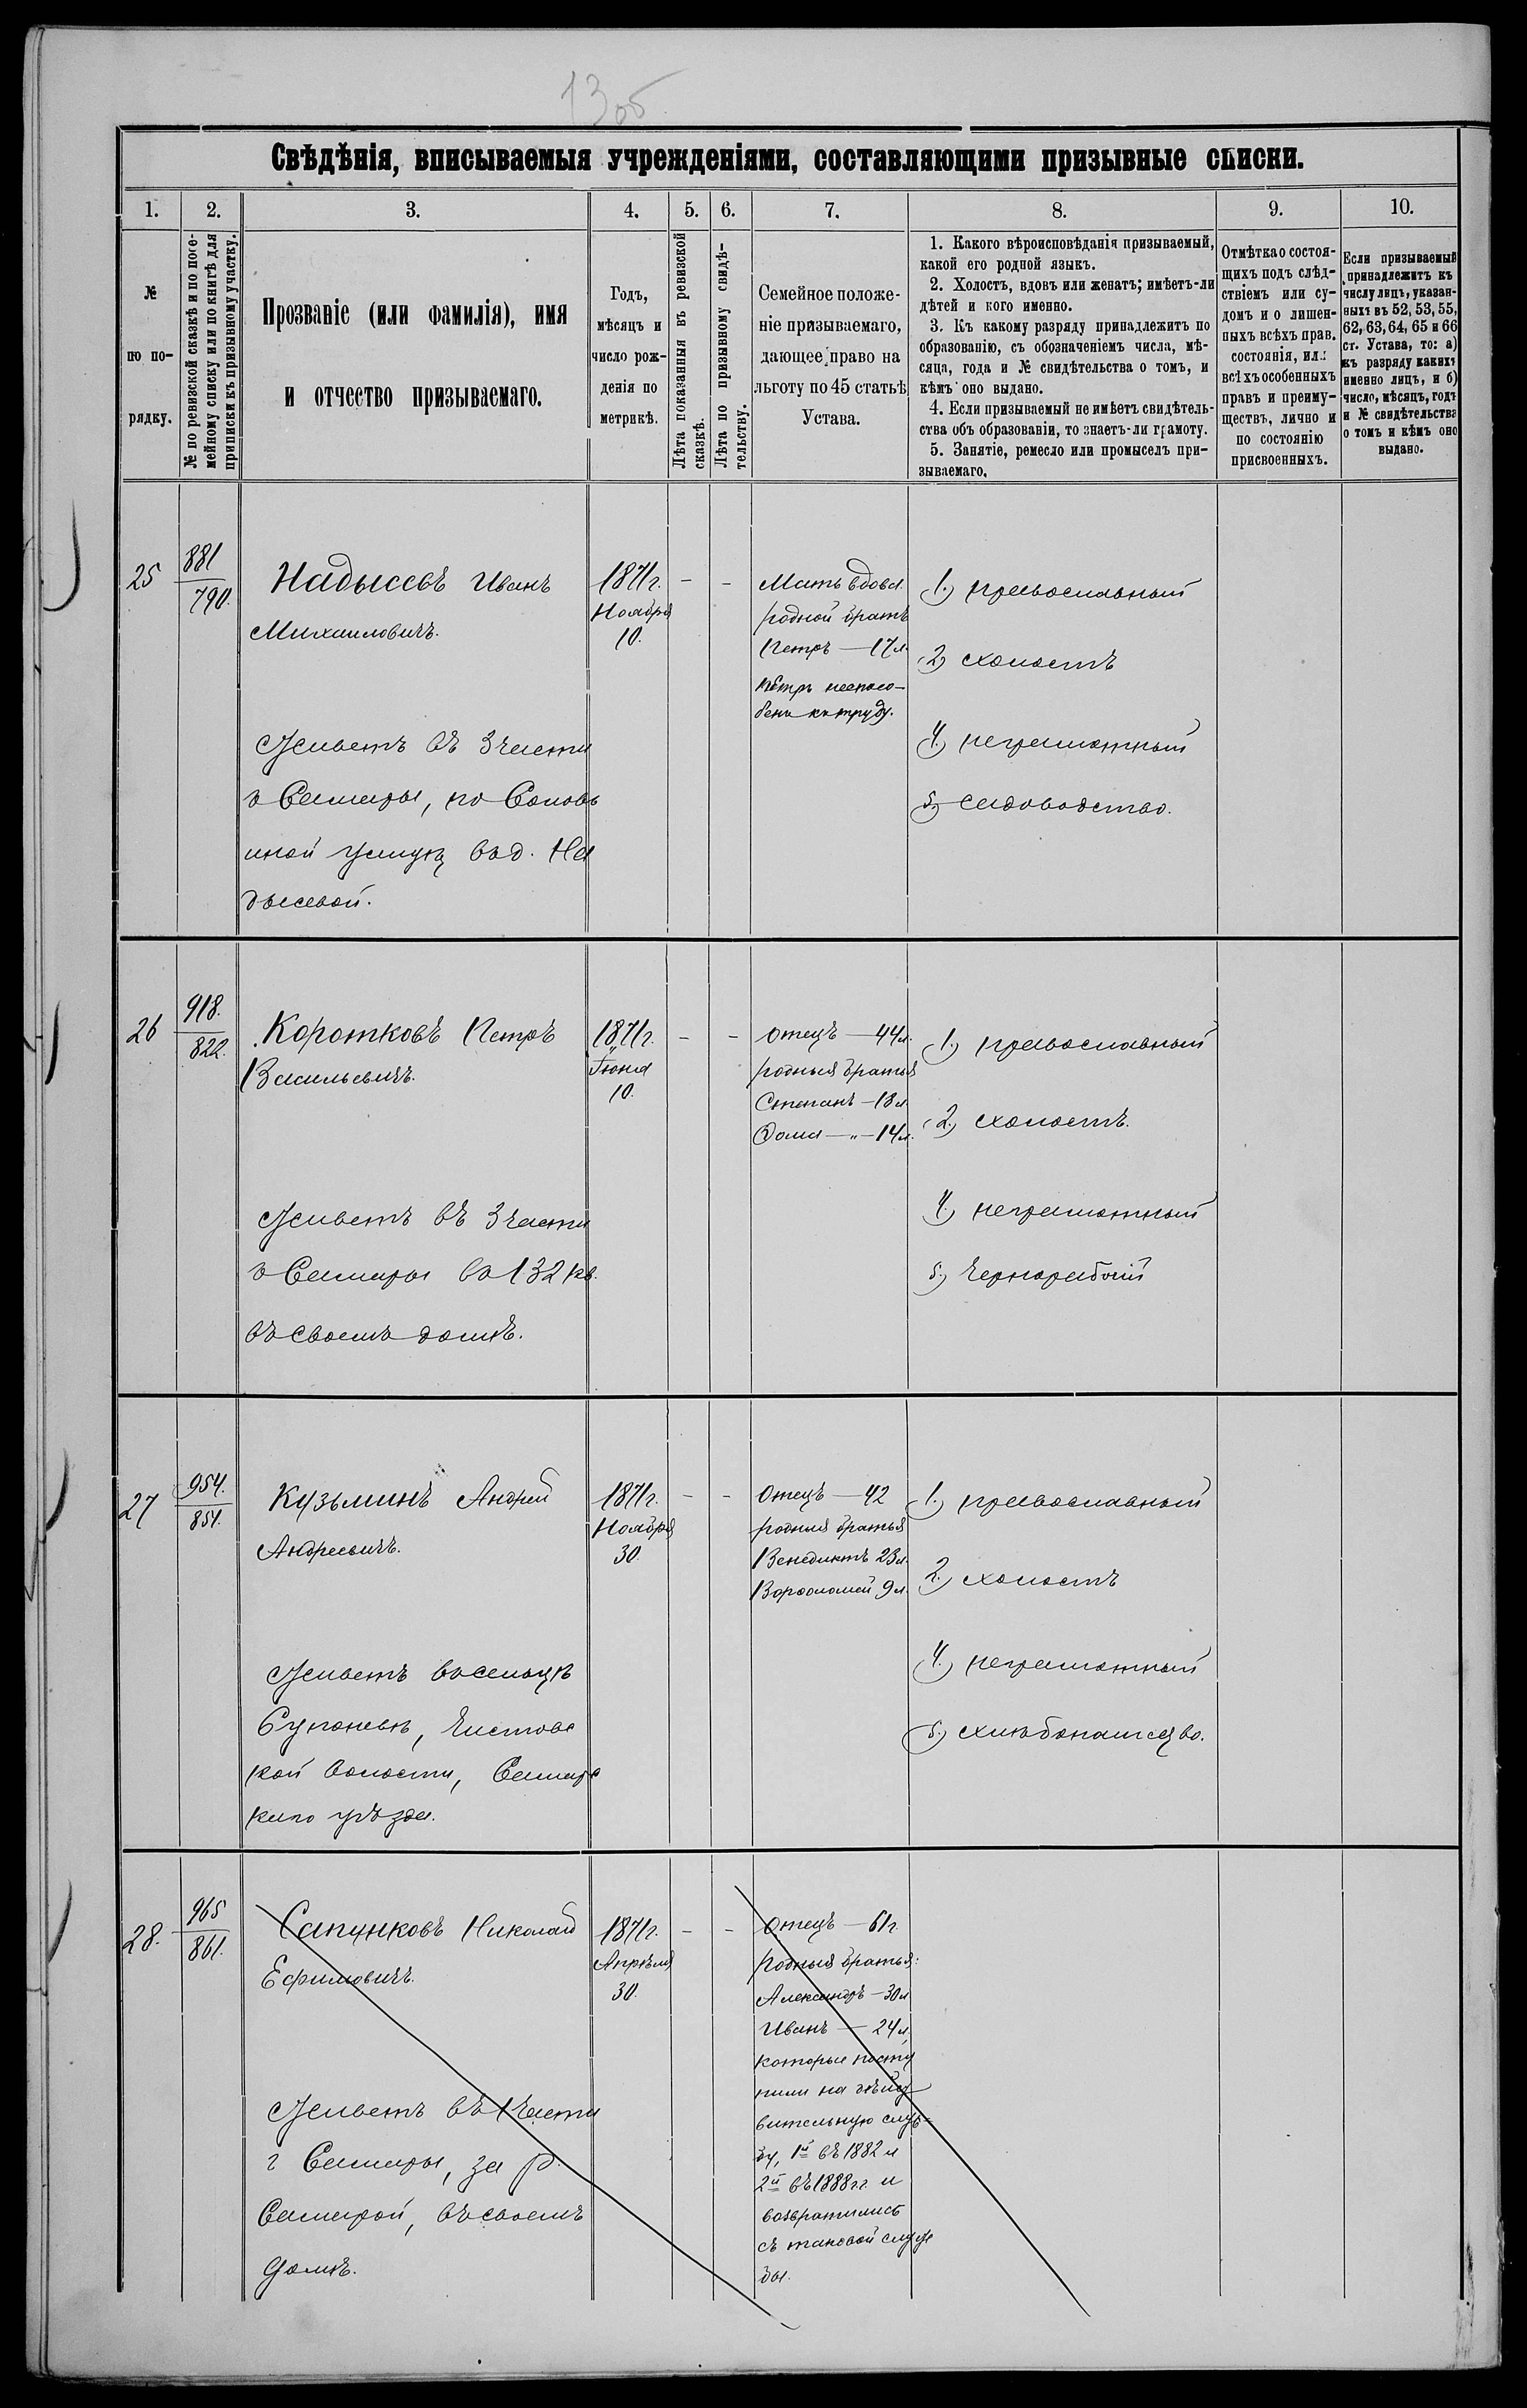 13об
Свѣдѣнія, вписываемыя учрежденіями, составляющими призывные списки.
1. 2. 3. 4. 5. 6. 7. 8. 9. 10.
№
по по-
рядку.
№ по ревизской сказкѣ и по посе-
мейному списку или по книгѣ для
приписки къ призывному участку.
Прозваніе (или фамилія), имя
и отчество призываемаго.
Годъ,
мѣсяцъ и
число рож-
денія по
метрикѣ.
Лѣта показанныя въ ревизской
сказкѣ.
Лѣта по призывному свидѣ-
тельству.
Семейное положе-
ніе призываемаго,
дающее право на
льготу по 45 статьѣ
Устава.
1. Какого вѣроисповѣданія призываемый,
какой его родной языкъ.
2. Холостъ, вдовъ или женатъ; имѣетъ-ли
дѣтей и кого именно.
3. Къ какому разряду принадлежитъ по
образованію, съ обозначеніемъ числа, мѣ-
сяца, года и № свидѣтельства о томъ, и
кѣмъ оно выдано.
4. Если призываемый не имѣетъ свидѣтель-
ства объ образованіи, то знаетъ-ли грамоту.
5. Занятіе, ремесло или промыселъ при-
зываемаго.
Отмѣтка о состоя-
щихъ подъ слѣд-
ствіемъ или су-
домъ и о лишен-
ныхъ всѣхъ прав.
состоянія, или
всѣхъ особенныхъ
правъ и преиму-
ществъ, лично и
по состоянію
присвоенныхъ.
Если призываемый
принадлежитъ къ
числу лицъ, указан-
ныхъ въ 52, 53, 55,
62, 63, 64, 65 и 66
ст. Устава, то: а)
къ разряду какихъ
именно лицъ, и б)
число, мѣсяцъ, годъ
и № свидѣтельства
о томъ и кѣмъ оно
выдано.
25
881
790.
Надысевъ Иванъ
Михаиловичъ.
Живетъ въ 3 части
г Самары, по Соловь
иной улицѣ в д. На
дысевой.
1871 г.
Ноября
10.
–
–
Мать вдова
родной братъ
Петръ — 17 л.
Петръ неспосо-
бенъ къ труду.
1.) православный
2) холостъ
4.) неграмотный
5.) садоводство.
26
918.
822.
Коротковъ Петръ
Васильевичъ.
Живетъ въ 3 части
г Самары в 132 кв.
въ своемъ домѣ.
1871 г.
Іюня
10.
–
–
отецъ — 44 л.
родныя братья
Степанъ — 18 л.
Фома — „ — 14 л.
1.) православный
2.) холостъ.
4.) неграмотный
5.) чернорабочій
27
954.
854.
Кузьминъ Андрей
Андреевичъ.
Живетъ в сельцѣ
Супоневѣ, Чистовс
кой волости, Самарс
каго уѣзда.
1871 г.
Ноября
30.
–
–
Отецъ — 42
родныя братья
Венедиктъ 23 л.
Варѳоломей 9 л.
1.) православный
2.) холостъ
4.) неграмотный
5.) хлѣбопашество.
28.
965
861.
Сапунковъ Николай
Ефимовичъ.
Живетъ въ 1 части
г Самары, за р.
Самарой, въ своемъ
домѣ.
1871 г.
Апрѣля
30.
–
–
Отецъ — 61 г.
родныя братья:
Александръ — 30 л
Иванъ — 24 л,
которые посту
пили на дѣйст
вительную служ=
бу, 1й въ 1882 и
2й въ 1888 гг. и
возвратились
съ таковой служ
бы.